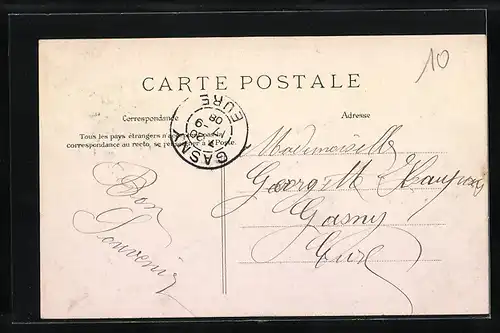 10
CARTE POSTALE
Correspondance
Adresse
Tous les pays étrangers n'acceptent pas la
correspondance au recto, se renseigner à la Poste.
GASNY
EURE
Mademoiselle
Georgette
Gasny
Eure
Bon
Souvenir